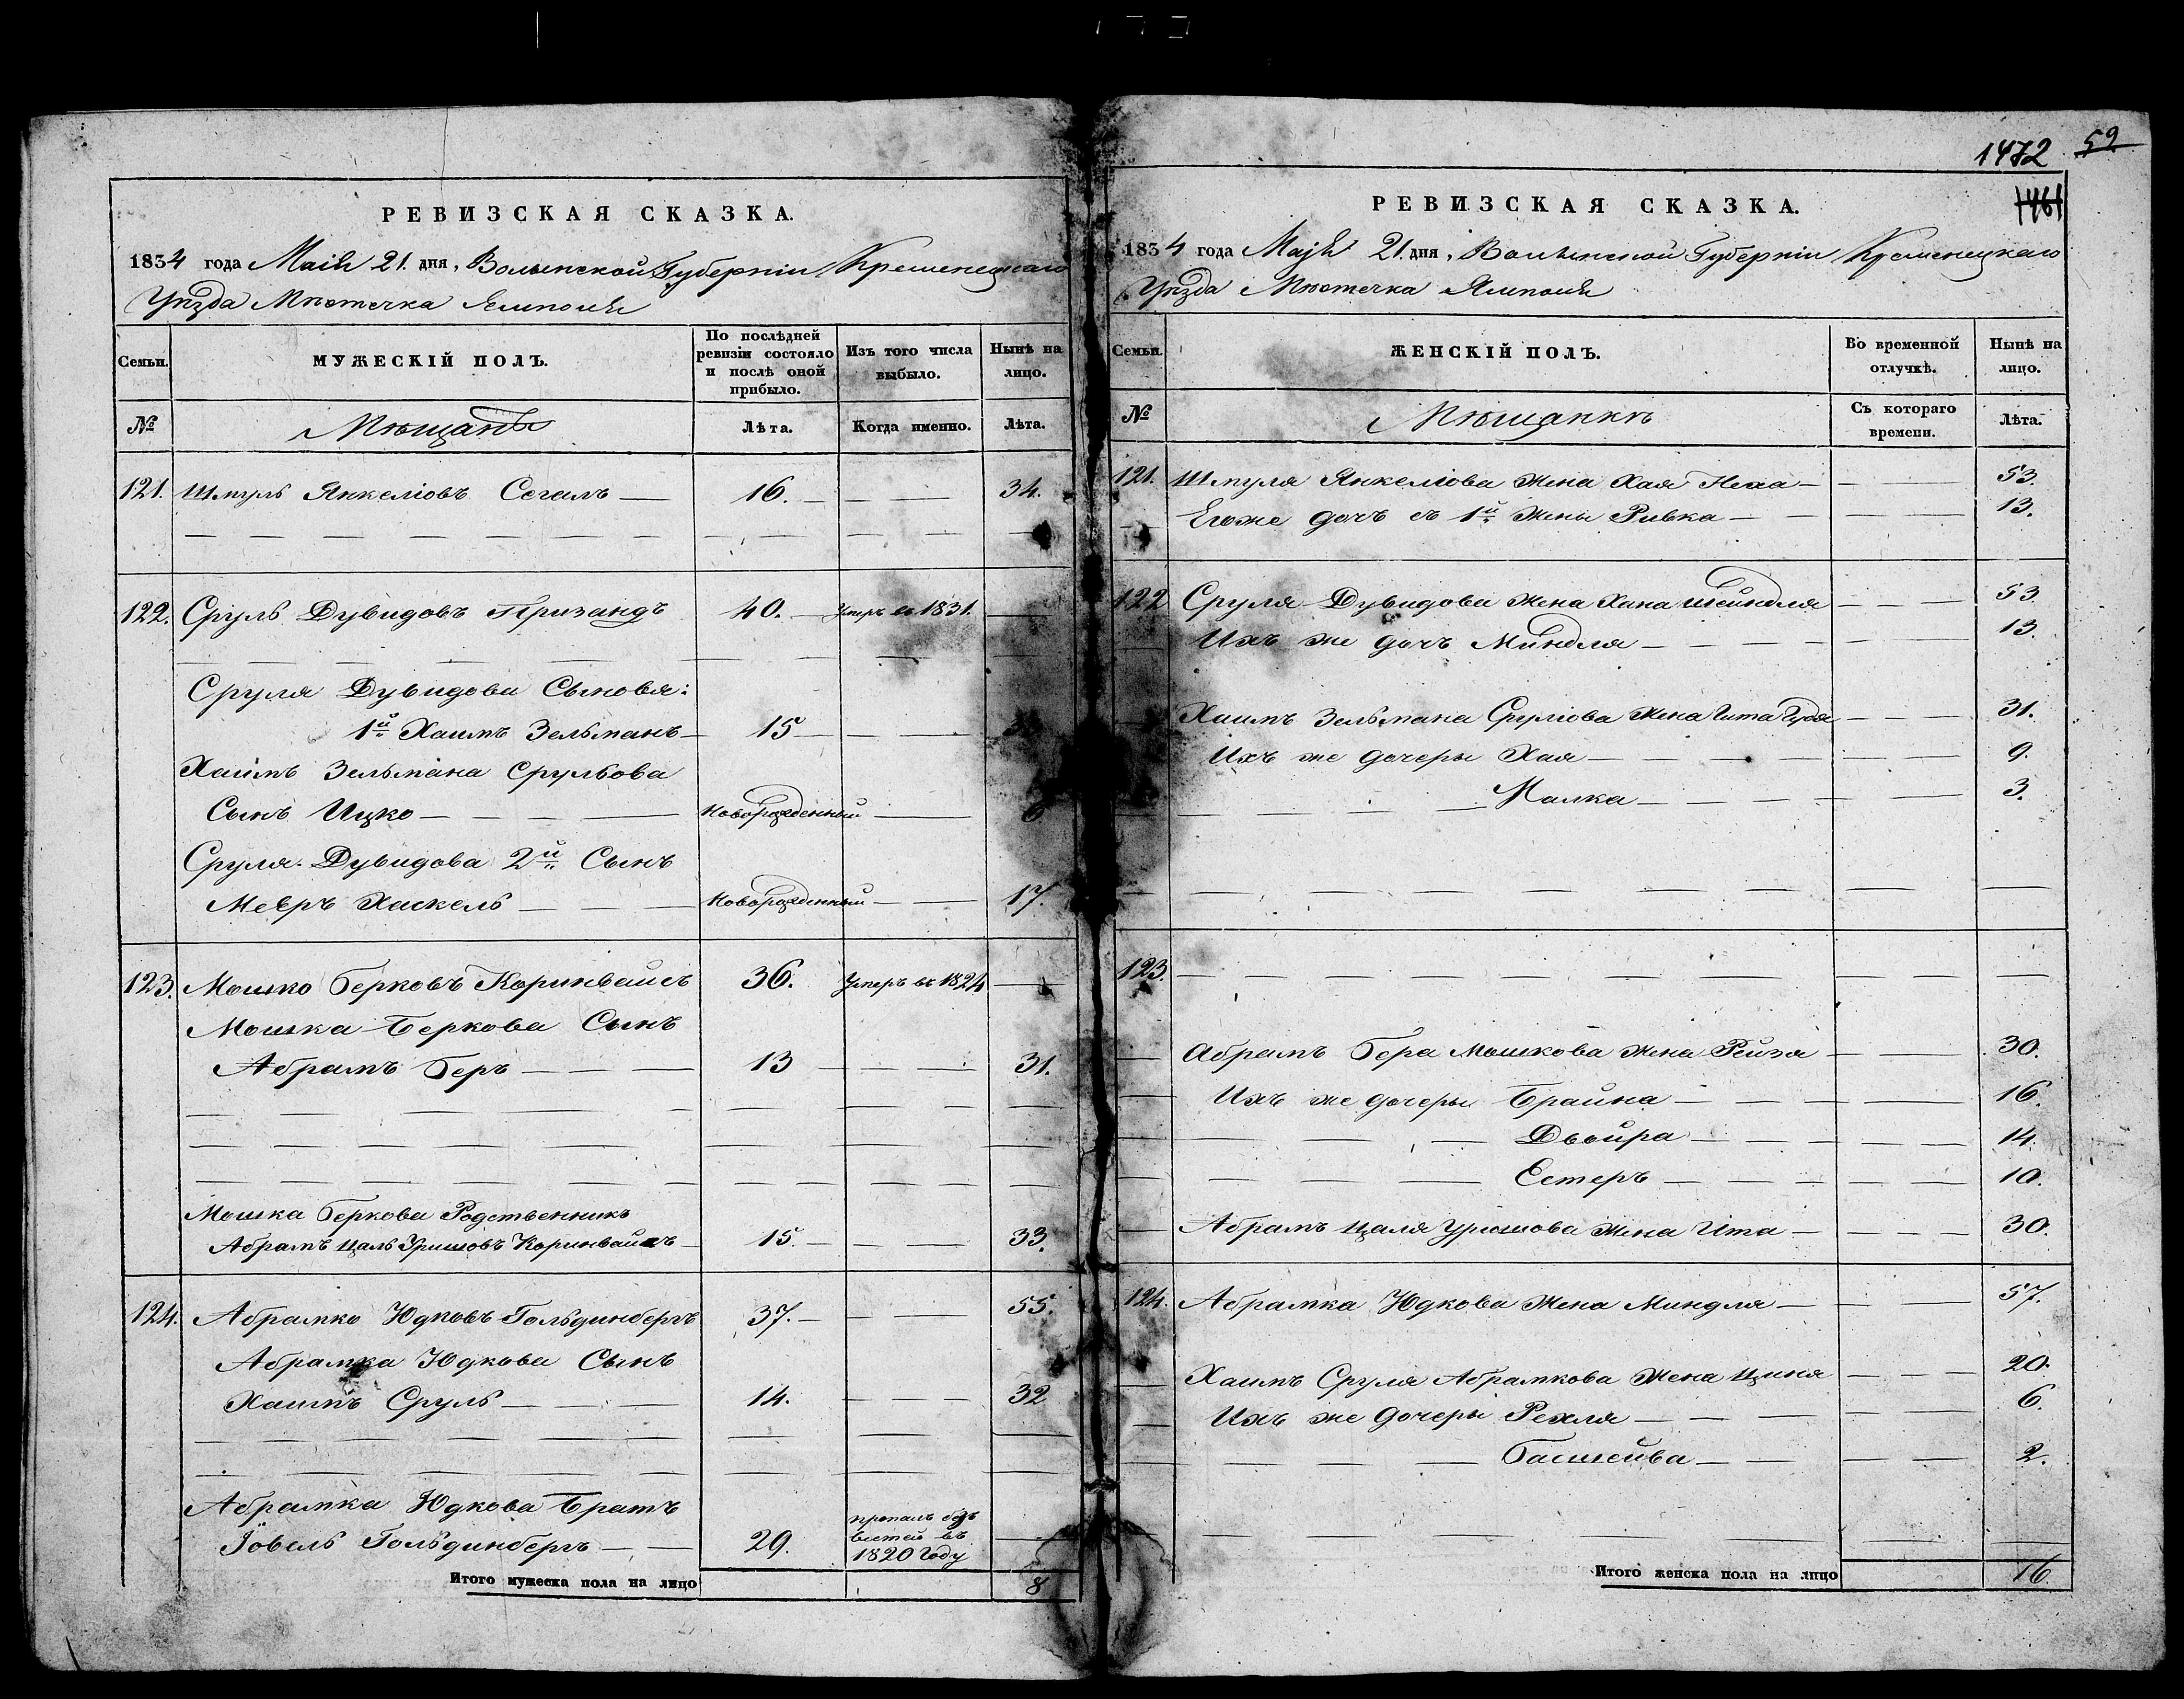 1472 52
1461
РЕВИЗСКАЯ СКАЗКА.
1834 года Маія 21. дня, Волынской Губерніи Кременецкаго
Уѣзда Мѣстечка Ямполя
Семьи.
МУЖЕСКІЙ ПОЛЪ.
По послѣдней ревизіи состояло и послѣ оной прибыло.
Изъ того числа выбыло.
Нынѣ на лицо.
№
Мѣщанѣ
Лѣта.
Когда именно.
Лѣта.
121. Шмуль Янкеліовъ Сегалъ — 16. — — — 34.
122. Сруль Дувидовъ Призандъ 40. — Умеръ въ 1831. —
Сруля Дувидова Сыновя:
1й Хаимъ Зельманъ — 15 — — —
Хаимъ Зельмана Срульова
Сынъ Ицко — — — — Новорожденный — 6
Сруля Дувидова 2й Сынъ
Меєръ Хаскель — — — Новорожденный — — 17.
123. Мошко Берковъ Коринвайсъ 36. Умеръ въ 1824 —
Мошка Беркова Сынъ
Абрамъ Беръ — — — 13 — — — 31.
Мошка Беркова Родственникъ
Абрамъ Цаль Уришовъ Коринвайсъ — 15. — — — 33.
124. Абрамко Юдковъ Гольдинбергъ 37. — — — 55.
Абрамка Юдкова Сынъ
Хаимъ Сруль — — — 14. — — 32
Абрамка Юдкова Братъ
Іовель Гольдинбергъ — — 29. пропалъ безъ вѣстей въ 1820 Году —
Итого мужеска пола на лицо 8
РЕВИЗСКАЯ СКАЗКА.
1834 года Маія 21. дня, Волынской Губерніи Кременецкаго
Уѣзда Мѣстечка Ямполя
Семьи.
ЖЕНСКІЙ ПОЛЪ.
Во временной отлучкѣ.
Нынѣ на лицо.
№
Мѣщанкѣ
Съ котораго времени.
Лѣта.
121. Шмуля Янкеліова Жена Хая Неха — — — 53.
Егоже дочъ съ 1й Жены Ривка — — — 13.
122 Сруля Дувидова Жена Хана Шейндля — — — 53.
Ихъ же дочъ Миндля — — — — — 13.
Хаимъ Зельмана Сруліова Жена Гита Гудя — — — 31.
Ихъ же дочеры Хая — — — — — 9.
Малка — — — — — 3.
123.
Абрамъ Бера Мошкова Жена Рейзя — — 30.
Ихъ же дочеры Брайна — — — — 16.
Двойра — — — — — 14.
Естеръ — — — — — 10.
Абрамъ Цаля Уришова Жена Ита — — — — 30.
124. Абрамка Юдкова Жена Миндля — — — 57.
Хаимъ Сруля Абрамкова Жена Циня — — — 20.
Ихъ же дочеры Рехля — — — — — 6.
Басшейва — — — — 2.
Итого женска пола на лицо 16.